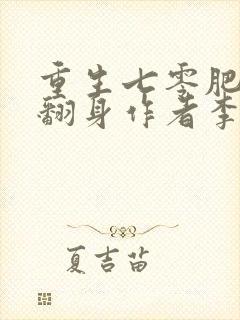 重生七零肥
翻身作者李
夏吉苗